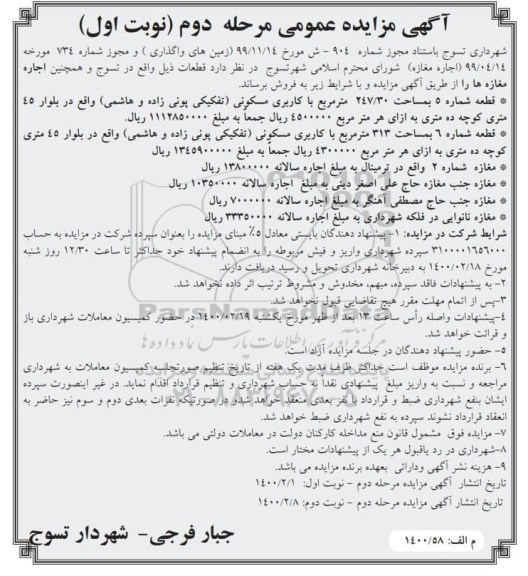 آگهی مزایده عمومی مرحله دوم (نوبت اول)
شهرداری تسوج باستناد مجوز شماره ۹۰۴ - ش مورخ ۹۹/۱۱/۱۴ (زمین های واگذاری ) و مجوز شماره ۷۳۴ مورخه
۹۹/۰۴/۱۴ (اجاره مغازه) شورای محترم اسلامی شهرتسوج در نظر دارد قطعات ذیل واقع در تسوج و همچنین اجاره
مغازه ها را از طریق آگهی مزایده و با شرایط زیر به فروش برساند.
* قطعه شماره ۵ بمساحت ۲۴۷/۳۰ مترمربع با کاربری مسکونی (تفکیکی پونی زاده و هاشمی) واقع در بلوار ۴۵
متری کوچه ده متری به ازای هر متر مربع ۴۵۰۰۰۰۰ ریال جمعاً به مبلغ ۱۱۱۲۸۵۰۰۰۰ ریال.
* قطعه شماره ۶ بمساحت ۳۱۳ مترمربع با کاربری مسکونی (تفکیکی پونی زاده و هاشمی) واقع در بلوار ۴۵ متری
کوچه ده متری به ازای هر متر مربع ۴۳۰۰۰۰۰ ریال جمعاً به مبلغ ۱۳۴۵۹۰۰۰۰۰ ریال
* مغازه شماره ۲ واقع در ترمینال به مبلغ اجاره سالانه ۱۳۸۰۰۰۰۰ ریال
* مغازه جنب مغازه حاج علی اصغر دینی به مبلغ اجاره سالانه ۱۰۳۵۰۰۰۰ ریال
* مغازه جنب حاج مصطفی آهنگر به مبلغ اجاره سالانه ۷۰۰۰۰۰۰ ریال
* مغازه نانوایی در فلکه شهرداری به مبلغ اجاره سالانه ۳۳۳۵۰۰۰۰ ریال
شرایط شرکت در مزایده: ۱- پیشنهاد دهندگان بایستی معادل ۵٪ مبنای مزایده را بعنوان سپرده شرکت در مزایده به حساب
۳۱۰۰۰۰۱۶۵۶۰۰۰ سپرده شهرداری واریز و فیش مربوطه را به انضمام پیشنهاد خود حداکثر تا ساعت ۱۲/۳۰ روز شنبه
مورخ ۱۴۰۰/۰۲/۱۸ به دبیرخانه شهرداری تحویل و رسید دریافت دارند.
۲- به پیشنهادات فاقد سپرده، مبهم، مخدوش و مشروط ترتیب اثر داده نخواهد شد.
۳-پس از اتمام مهلت مقرر هیچ تقاضایی قبول نخواهد شد.
۴-پیشنهادات واصله رأس ساعت ۱۳ بعد از ظهر مورخ یکشنبه ۱۴۰۰/۰۲/۱۹ در حضور کمیسیون معاملات شهرداری باز
و قرائت خواهد شد.
۵- حضور پیشنهاد دهندگان در جلسه مزایده آزاد است.
۶- برنده مزایده موظف است حداکثر ظرف مدت یک هفته از تاریخ تنظیم صورتجلسه کمیسیون معاملات به شهرداری
مراجعه و نسبت به واریز مبلغ پیشنهادی نقدا به حساب شهرداری و تنظیم قرارداد اقدام نماید. در غیر اینصورت سپرده
ایشان بنفع شهرداری ضبط و قرارداد با نفر بعدی منعقد خواهد شد. در صورتیکه نفرات بعدی دوم و سوم نیز حاضر به
انعقاد قرارداد نشوند سپرده به نفع شهرداری ضبط خواهد شد.
۷- مزایده فوق مشمول قانون منع مداخله کارکنان دولت در معاملات دولتی می باشد.
۸-شهرداری در رد یاقبول هر یک از پیشنهادات مختار است.
۹- هزینه نشر آگهی ودارائی بعهده برنده مزایده می باشد.
تاریخ انتشار آگهی مزایده مرحله دوم - نوبت اول: ۱۴۰۰/۲/۱
تاریخ انتشار آگهی مزایده مرحله دوم - نوبت دوم: ۱۴۰۰/۲/۸
جبار فرجی- شهردار تسوج
م الف: ۱۴۰۰/۵۸
ParsNamadData